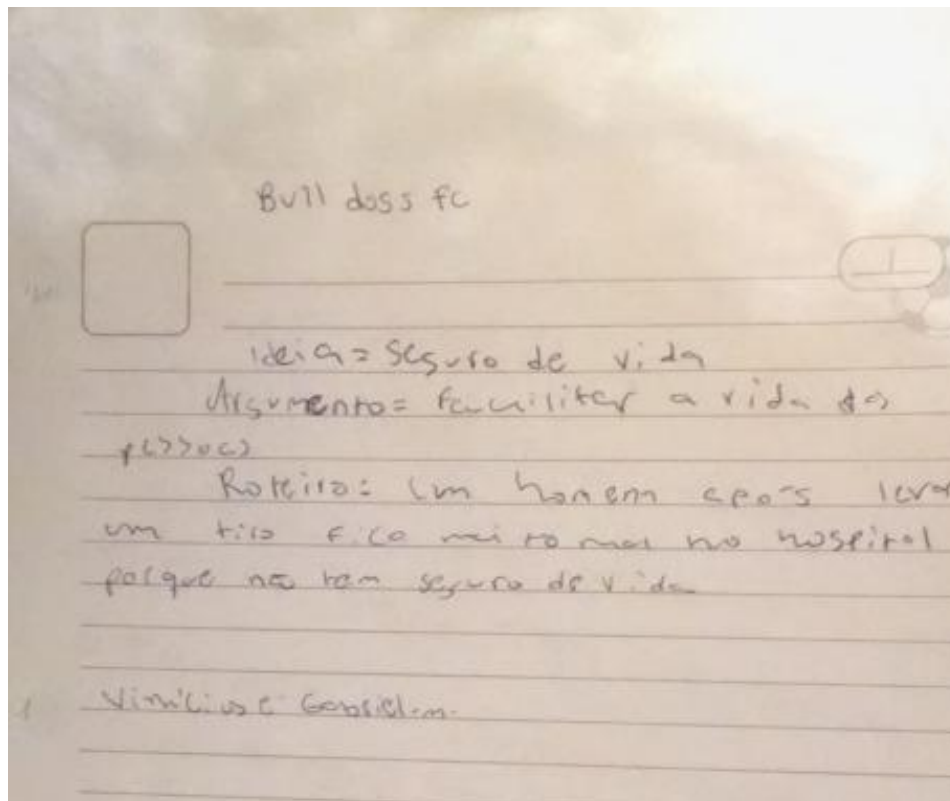 Bull doss fc
Ideia = Seguro de vida
Argumento = facuilitar a vida das
pessoas
Roteiro: Um homem apos levar
um tiro fica muito mal no hospital
porque não tem seguro de vida
Vinícius e Gabriel.m.